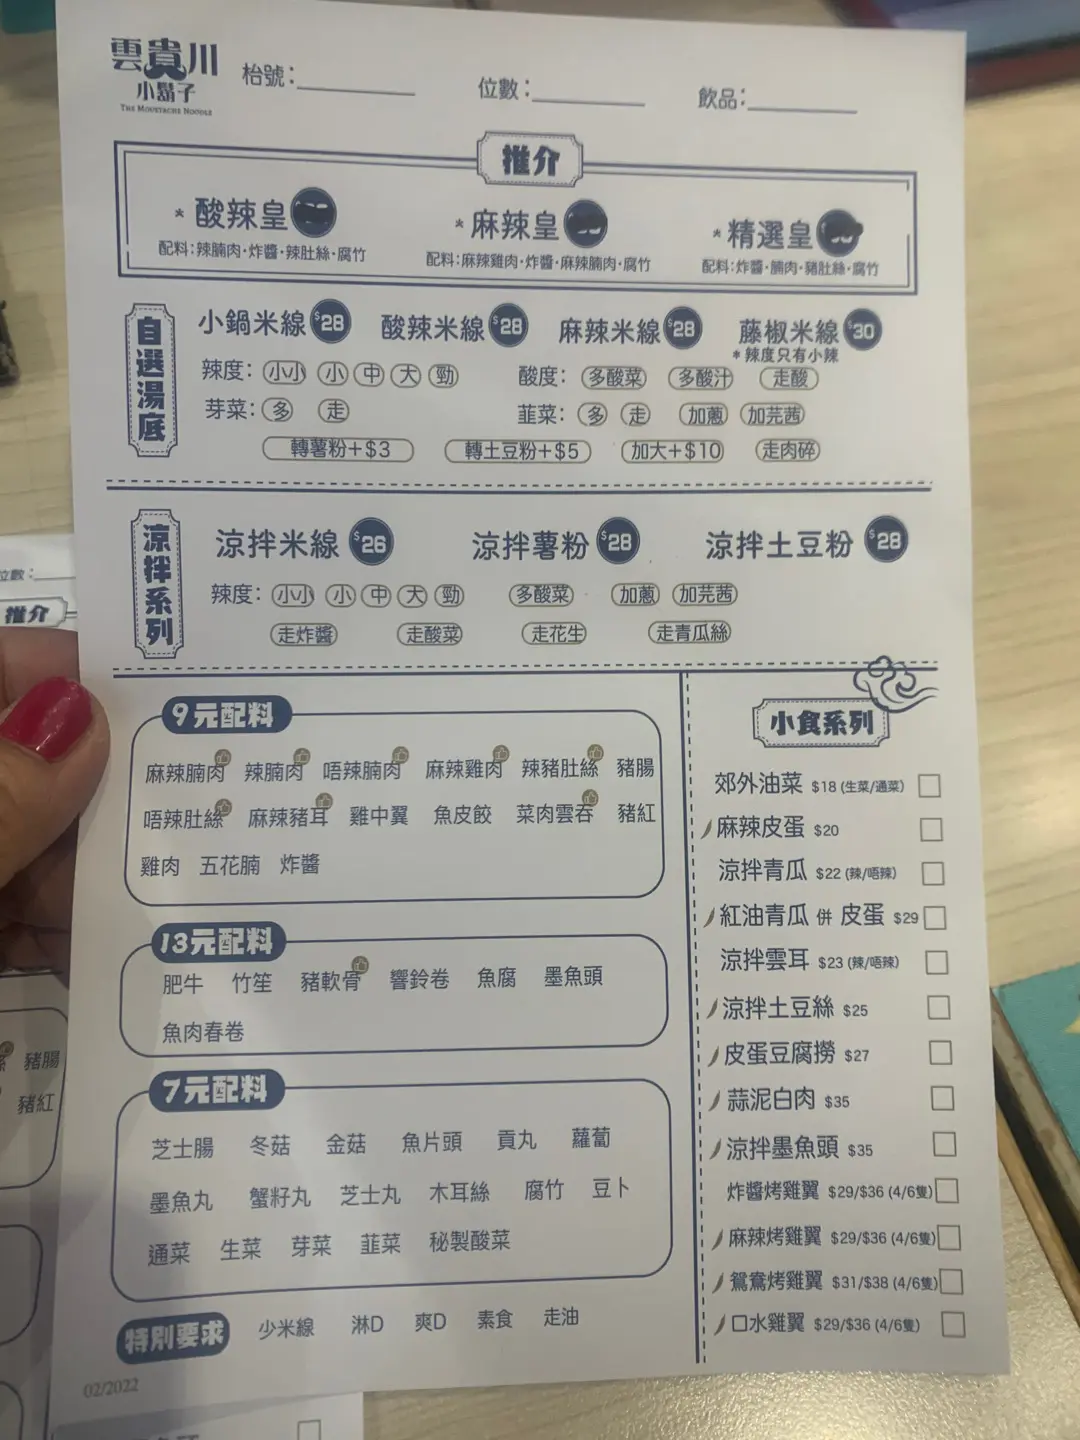 雲貴川
小鬍子
THE MOUSTACHE NOODLE
枱號：
位數：
飲品：
推介
*酸辣皇
配料：辣腩肉·炸醬·辣肚絲·腐竹
*麻辣皇
配料：麻辣雞肉·炸醬·麻辣腩肉·腐竹
*精選皇
配料：炸醬·腩肉·豬肚絲·腐竹
自選湯底
小鍋米線 $28 酸辣米線 $28 麻辣米線 $28 藤椒米線 $30
*辣度只有小辣
辣度： 小小 小 中 大 勁 酸度： 多酸菜 多酸汁 走酸
芽菜： 多 走 韮菜： 多 走 加蔥 加芫茜
轉薯粉+$3 轉土豆粉+$5 加大+$10 走肉碎
涼拌系列
涼拌米線 $26 涼拌薯粉 $28 涼拌土豆粉 $28
辣度： 小小 小 中 大 勁 多酸菜 加蔥 加芫茜
走炸醬 走酸菜 走花生 走青瓜絲
9元配料
麻辣腩肉 辣腩肉 唔辣腩肉 麻辣雞肉 辣豬肚絲 豬腸
唔辣肚絲 麻辣豬耳 雞中翼 魚皮餃 菜肉雲吞 豬紅
雞肉 五花腩 炸醬
13元配料
肥牛 竹笙 豬軟骨 響鈴卷 魚腐 墨魚頭
魚肉春卷
7元配料
芝士腸 冬菇 金菇 魚片頭 貢丸 蘿蔔
墨魚丸 蟹籽丸 芝士丸 木耳絲 腐竹 豆卜
通菜 生菜 芽菜 韮菜 秘製酸菜
特別要求 少米線 淋D 爽D 素食 走油
02/2022
小食系列
郊外油菜 $18 (生菜/通菜)
麻辣皮蛋 $20
涼拌青瓜 $22 (辣/唔辣)
紅油青瓜 併 皮蛋 $29
涼拌雲耳 $23 (辣/唔辣)
涼拌土豆絲 $25
皮蛋豆腐撈 $27
蒜泥白肉 $35
涼拌墨魚頭 $35
炸醬烤雞翼 $29/$36 (4/6隻)
麻辣烤雞翼 $29/$36 (4/6隻)
鴛鴦烤雞翼 $31/$38 (4/6隻)
口水雞翼 $29/$36 (4/6隻)
位數：
推介
豬腸
豬紅